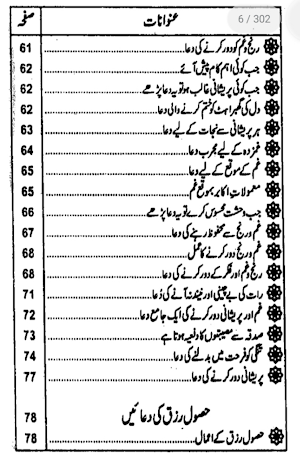 6 / 302
عنوانات صفحہ
رنج و غم کو دور کرنے کی دعا 61
جب کوئی اہم کام پیش آئے 62
جب کوئی پریشانی غالب ہو تو یہ دعا پڑھے 62
دل کی گھبراہٹ کو ختم کرنے والی دعا 62
ہر پریشانی سے نجات کے لیے دعا 63
غمزدہ کے لیے مجرب دعا 64
غم کے موقع کے لیے دعا 65
معمولات اکابر بموقع غم 65
جب وحشت محسوس کرے تو یہ دعا پڑھے 66
غم و رنج سے محفوظ رہنے کی دعا 67
غم و رنج دور کرنے کا عمل 68
رنج و غم اور فکر کے دور کرنے کی دعا 68
رات کی بے چینی اور نیند نہ آنے کی دُعا 71
غم اور پریشانی دور کرنے کی ایک جامع دعا 72
صدقہ سے مصیبتوں کا دفعیہ ہوتا ہے 73
تنگی کو فرحت میں بدلنے کی دعا 74
پریشانی دور کرنے کی دعا 77
حصول رزق کی دعائیں 78
حصول رزق کے اعمال 78